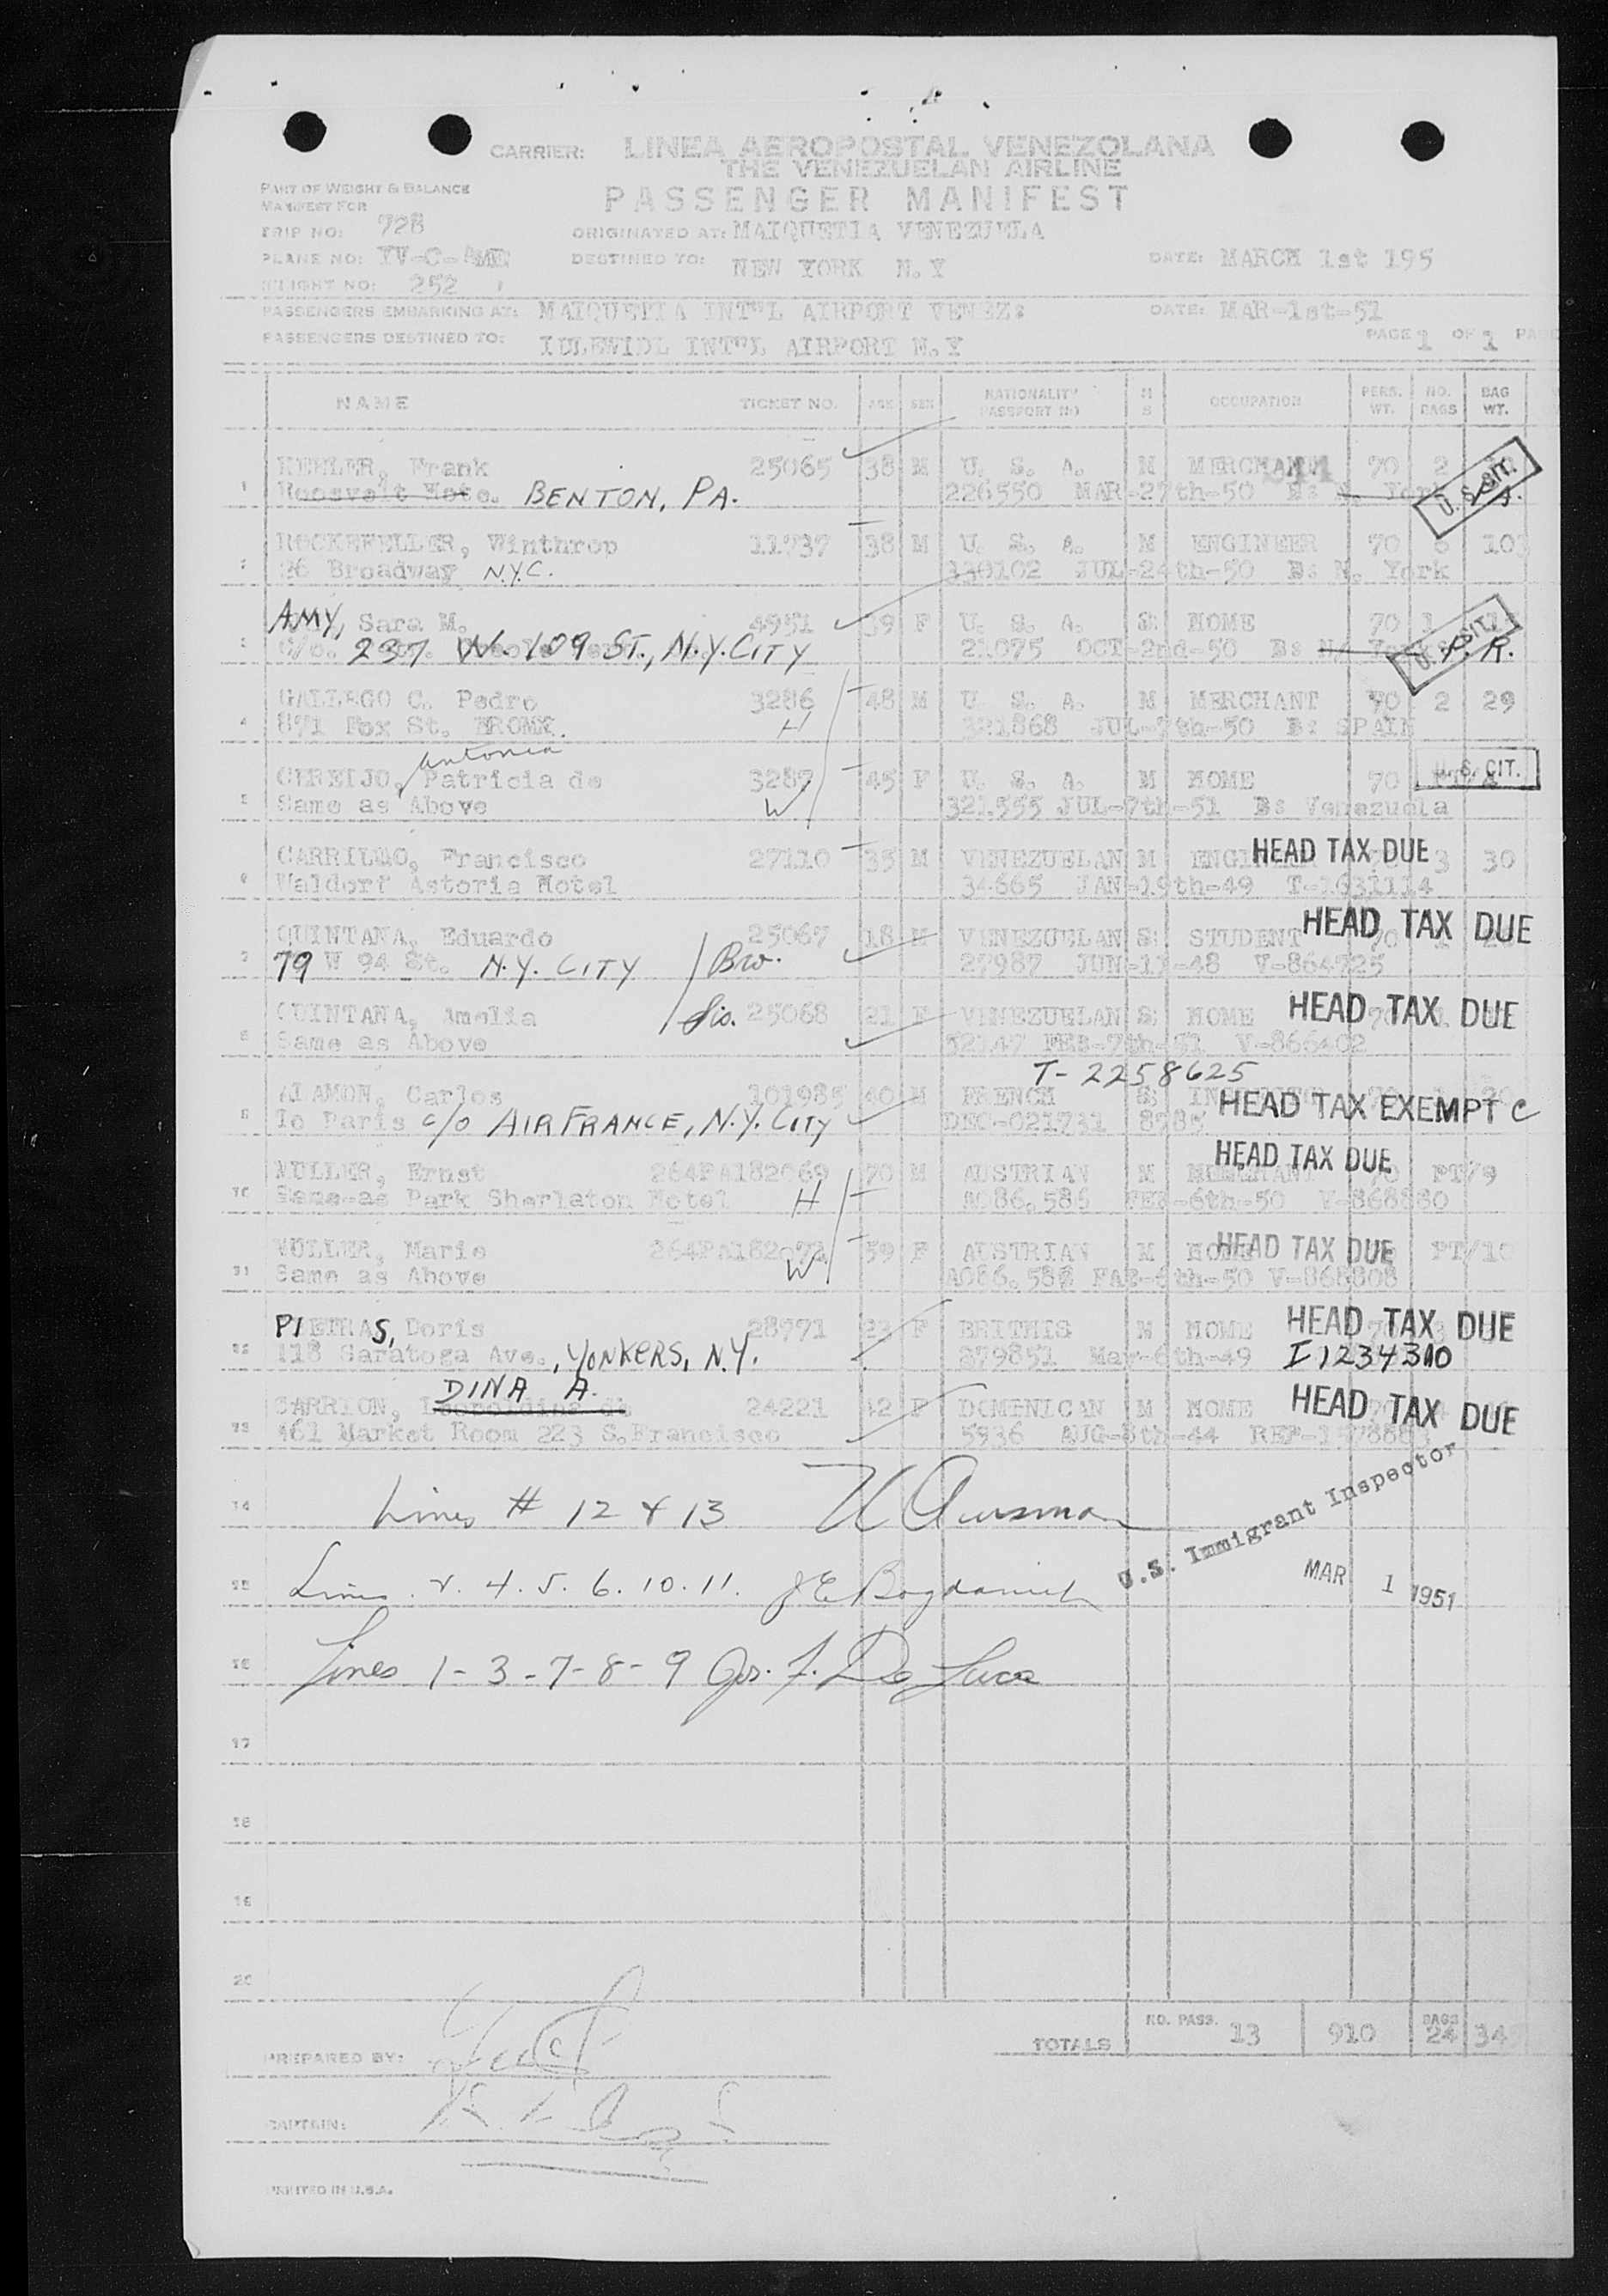 CARRIER: LINEA AEROPOSTAL VENEZOLANA
THE VENEZUELAN AIRLINE
PASSENGER MANIFEST
PART OF WEIGHT & BALANCE
MANIFEST FOR
TRIP NO: 728
ORIGINATED AT: MAIQUETIA VENEZUELA
PLANE NO: YV-C-AME
DESTINED TO: NEW YORK N.Y
DATE: MARCH 1st 195
FLIGHT NO: 252
PASSENGERS EMBARKING AT: MAIQUETIA INT"L AIRPORT VENEZ:
DATE: MAR-1st-51
PASSENGERS DESTINED TO: IDLEWIDL INT"L AIRPORT N.Y
PAGE 1 OF 1
NAME TICKET NO. AGE SEX NATIONALITY PASSPORT NO M S OCCUPATION PERS. WT. NO. BAGS BAG WT.
Frank 25065 38 M U. S. A. M MERCHANT 70 2
1 BENTON, PA. 226550 MAR-27th-50 B: U. S. CIT.
ROCKEFELLER, Winthrop 11737 38 M U. S. A. M ENGINEER 70 6 103
2 26 Broadway N.Y.C. 130102 JUL-24th-50 B: N. York
AMY, Sara M. 4951 39 F U. S. A. S: HOME 70 1
3 c/o. 237 W. 109 ST., N.Y. CITY 21075 OCT-2nd-50 B: P. R. U. S. CIT.
GALLEGO C. Pedro 3286 48 M U. S. A. M MERCHANT 70 2 29
4 871 Fox St. BRONX. H 321868 JUL-7th-50 B: SPAIN
Antonia
CIREIJO, Patricia de 3287 45 F U. S. A. M HOME 70 U. S. CIT.
5 Same as Above W 321555 JUL-7th-51 B: Venezuela
CARRILLO, Francisco 27110 35 M VENEZUELAN M HEAD TAX DUE 3 30
6 Waldorf Astoria Hotel 34665 JAN-19th-49 T-1631114
QUINTANA, Eduardo 25067 18 M VENEZUELAN S: STUDENT 70 HEAD TAX DUE
7 79 W 94 St. N.Y. CITY Bro. 27987 JUN-11-48 V-864725
QUINTANA, Amelia Sis. 25068 21 F VENEZUELAN S: HOME HEAD TAX DUE
8 Same as Above 52147 FEB-7th-51 V-866402
T-2258625
ALAMON, Carlos 101985 40 M FRENCH S: HEAD TAX EXEMPT C
9 To Paris c/o AIR FRANCE, N.Y. CITY DEC-021731 8785
MULLER, Ernst 264PA182069 70 M AUSTRIAN M MERCHANT HEAD TAX DUE PT/9
10 Same as Park Sherlaton Hotel H A086.586 FEB-6th-50 V-868880
MULLER, Marie 264PA182071 59 F AUSTRIAN M HOME HEAD TAX DUE PT/10
11 Same as Above W A086.587 FAB-6th-50 V-868808
PIETRAS, Doris 28971 23 F BRITHIS M HOME HEAD TAX DUE
12 118 Saratoga Ave., YONKERS, N.Y. 279851 May-6th-49 I 1234310
DINA A.
CARRION, 24221 42 F DOMINICAN M HOME HEAD TAX DUE
13 461 Market Room 223 S.Francisco 5936 AUG-8th-44
14 Lines # 12 & 13
U.S. Immigrant Inspector
15 Lines 2. 4. 5. 6. 10. 11.
MAR 1 1951
16 Lines 1-3-7-8-9 Jos. F. De Luca
17
18
19
20
TOTALS NO. PASS. 13 910 BAGS 24 34
PREPARED BY:
CAPTAIN:
PRINTED IN U.S.A.